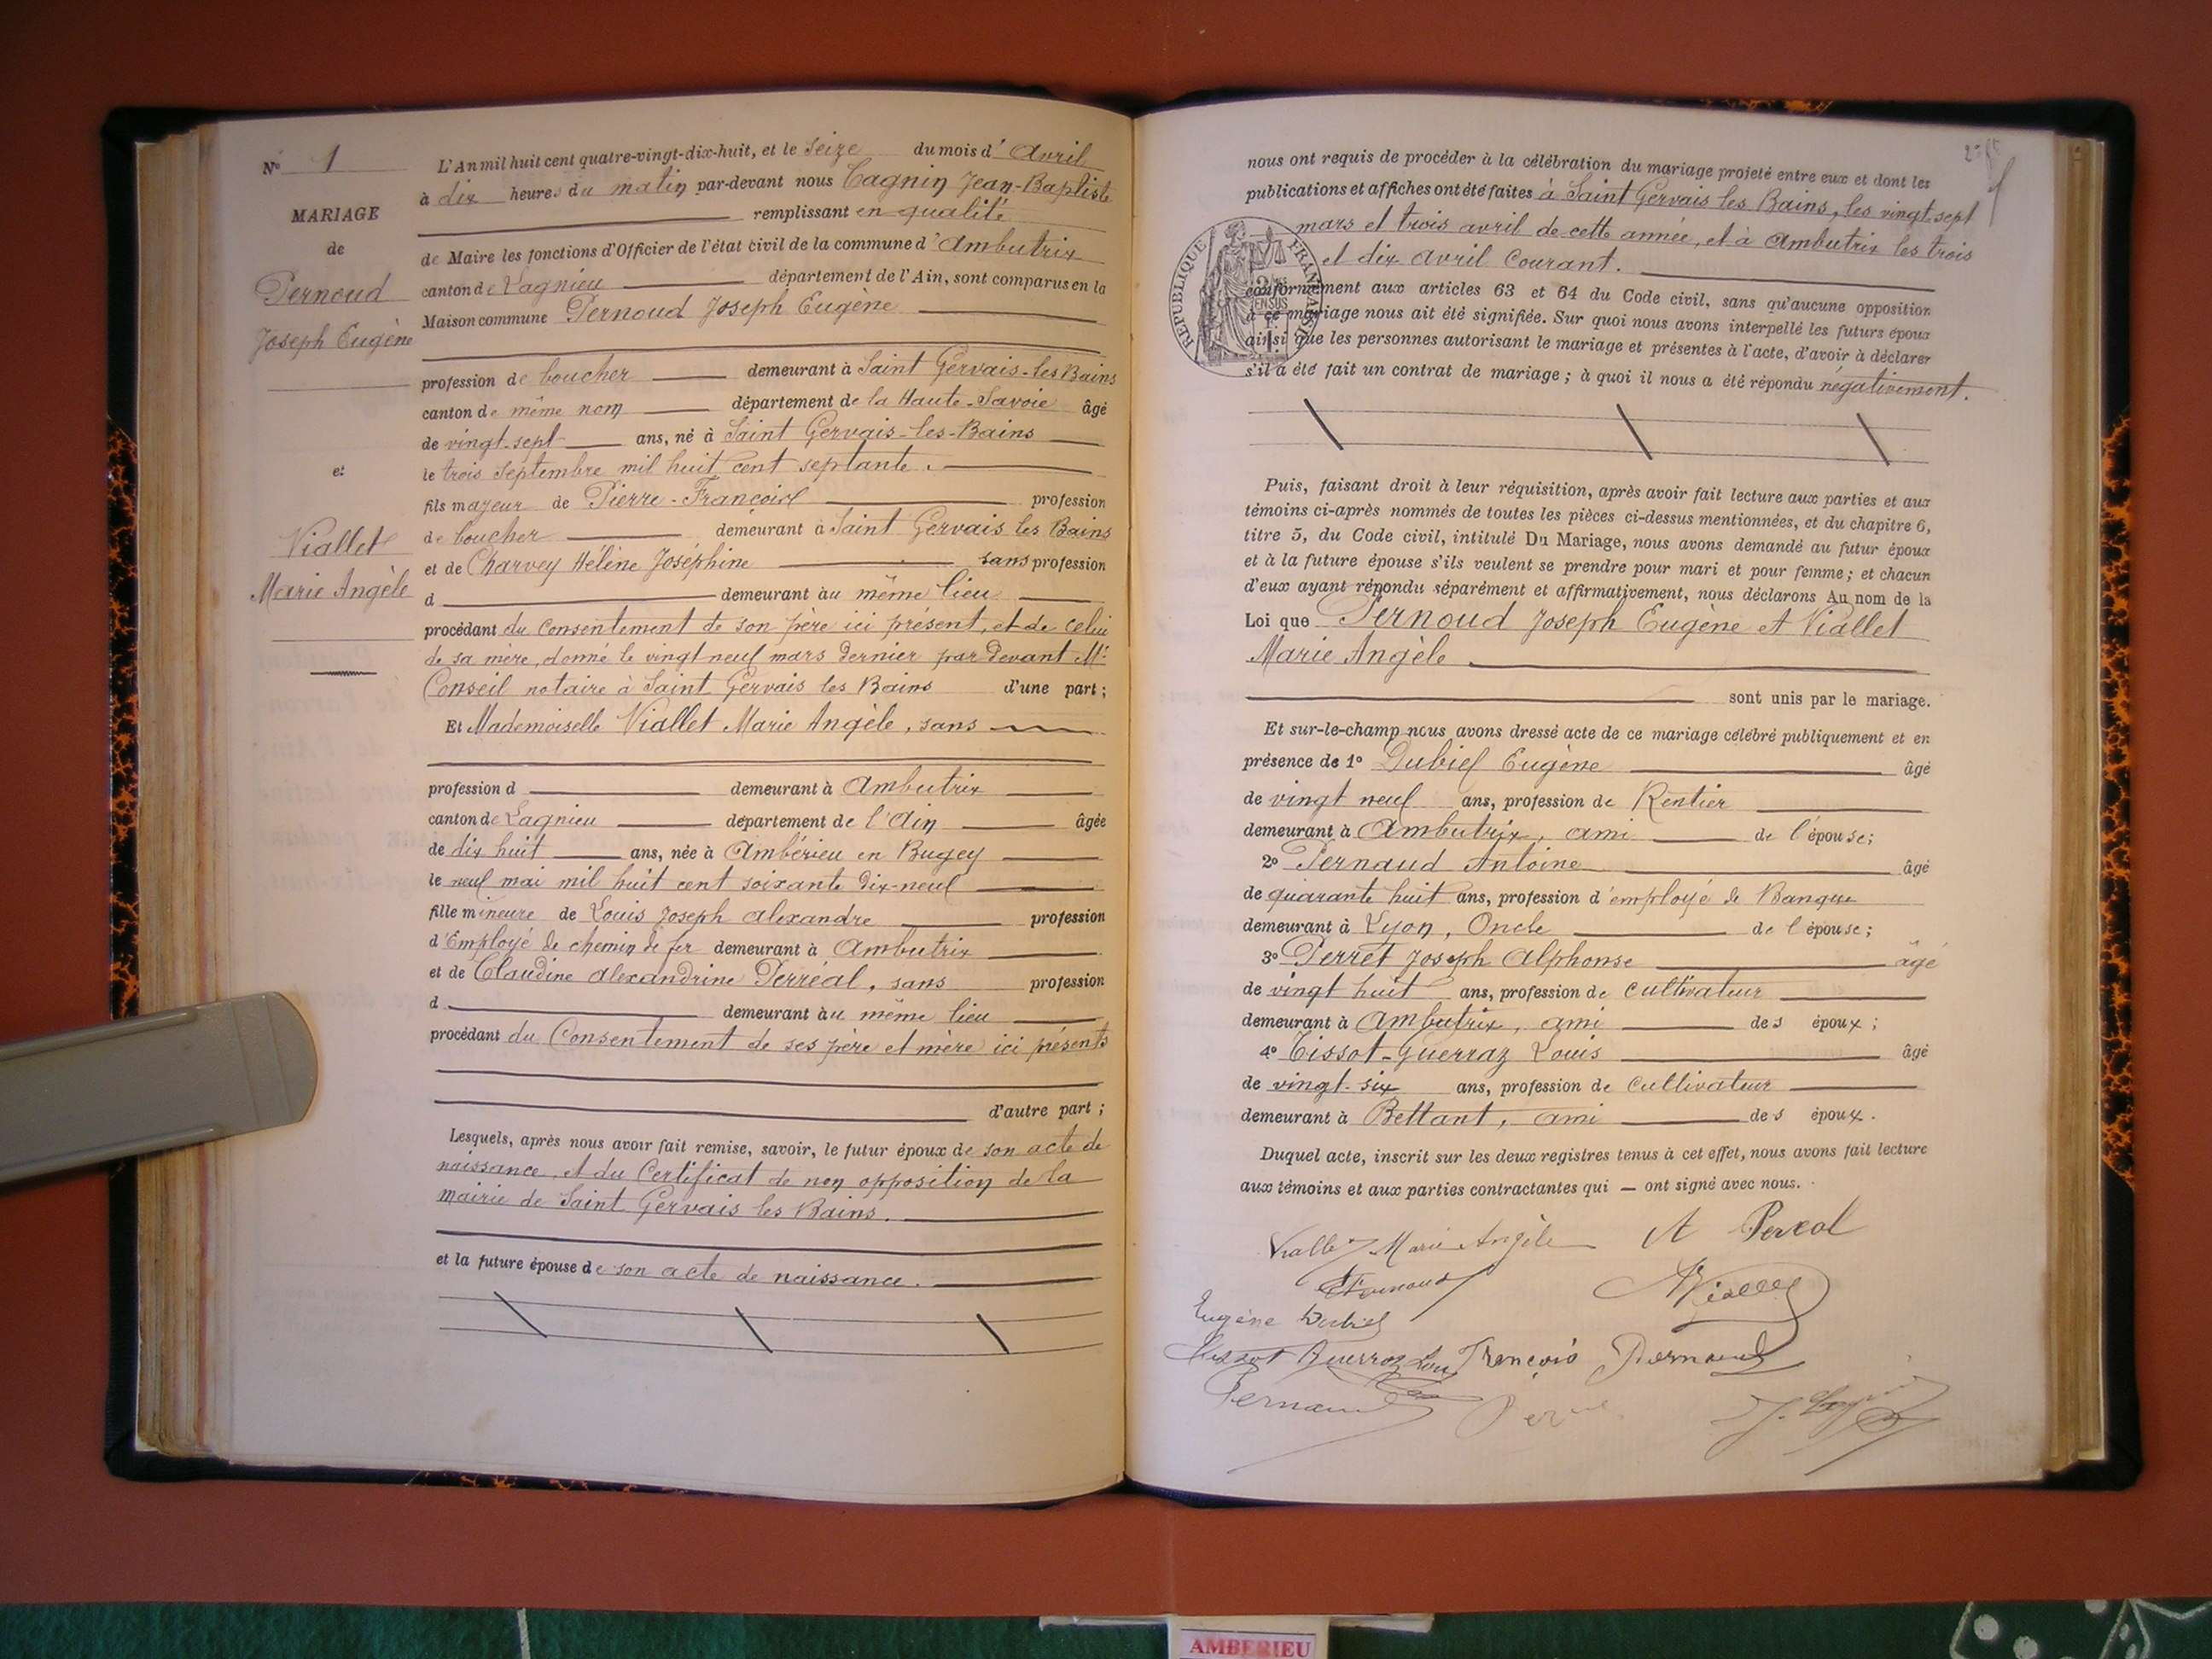 N° 1
MARIAGE
de
Pernoud
Joseph Eugène
et
Viallet
Marie Angèle
L'An mil huit cent quatre-vingt-dix-huit, et le seize du mois d'Avril
à dix heures du matin par-devant nous Cagnin Jean-Baptiste
remplissant en qualité
de Maire les fonctions d'Officier de l'état civil de la commune d'Ambutrix
canton de Lagnieu département de l'Ain, sont comparus en la
Maison commune Pernoud Joseph Eugène
profession de boucher demeurant à Saint Gervais-les-Bains
canton de même nom département de la Haute-Savoie âgé
de vingt-sept ans, né à Saint Gervais-les-Bains
le trois septembre mil huit cent septante.
fils majeur de Pierre-François profession
de boucher demeurant à Saint Gervais les Bains
et de Charvey Hélène Joséphine sans profession
d demeurant au même lieu
procédant du consentement de son père ici présent, et de celui
de sa mère, donné le vingt neuf mars dernier par devant Me
Conseil notaire à Saint Gervais les Bains d'une part;
Et Mademoiselle Viallet Marie Angèle, sans
profession d demeurant à Ambutrix
canton de Lagnieu département de l'Ain âgée
de dix huit ans, née à Ambérieu en Bugey
le neuf mai mil huit cent soixante dix-neuf
fille mineure de Louis Joseph Alexandre profession
d'Employé de chemin de fer demeurant à Ambutrix
et de Claudine Alexandrine Perréal, sans profession
d demeurant au même lieu
procédant du Consentement de ses père et mère ici présents
d'autre part;
Lesquels, après nous avoir fait remise, savoir, le futur époux de son acte de
naissance, et du Certificat de non opposition de la
mairie de Saint Gervais les Bains.
et la future épouse de son acte de naissance.
nous ont requis de procéder à la célébration du mariage projeté entre eux et dont les
publications et affiches ont été faites à Saint Gervais les Bains, les vingt-sept
mars et trois avril de cette année, et à Ambutrix les trois
et dix avril courant.
REPUBLIQUE FRANÇAISE
conformément aux articles 63 et 64 du Code civil, sans qu'aucune opposition
à ce mariage nous ait été signifiée. Sur quoi nous avons interpellé les futurs époux
ainsi que les personnes autorisant le mariage et présentes à l'acte, d'avoir à déclarer
s'il a été fait un contrat de mariage; à quoi il nous a été répondu négativement.
Puis, faisant droit à leur réquisition, après avoir fait lecture aux parties et aux
témoins ci-après nommés de toutes les pièces ci-dessus mentionnées, et du chapitre 6,
titre 5, du Code civil, intitulé Du Mariage, nous avons demandé au futur époux
et à la future épouse s'ils veulent se prendre pour mari et pour femme; et chacun
d'eux ayant répondu séparément et affirmativement, nous déclarons Au nom de la
Loi que Pernoud Joseph Eugène et Viallet
Marie Angèle
sont unis par le mariage.
Et sur-le-champ nous avons dressé acte de ce mariage célébré publiquement et en
présence de 1° Dubief Eugène âgé
de vingt neuf ans, profession de Rentier
demeurant à Ambutrix, ami de l'épouse;
2° Pernaud Antoine âgé
de quarante huit ans, profession d'employé de Banque
demeurant à Lyon, Oncle de l'épouse;
3° Perret Joseph Alphonse âgé
de vingt huit ans, profession de cultivateur
demeurant à Ambutrix, ami des époux;
4° Tissot-Guerraz Louis âgé
de vingt-six ans, profession de cultivateur
demeurant à Bettant, ami des époux.
Duquel acte, inscrit sur les deux registres tenus à cet effet, nous avons fait lecture
aux témoins et aux parties contractantes qui — ont signé avec nous.
Viallet Marie Angèle A Perréal
Viallet
Eugène Dubief
Tissot Guerraz Louis François Pernoud
Pernaud
AMBERIEU